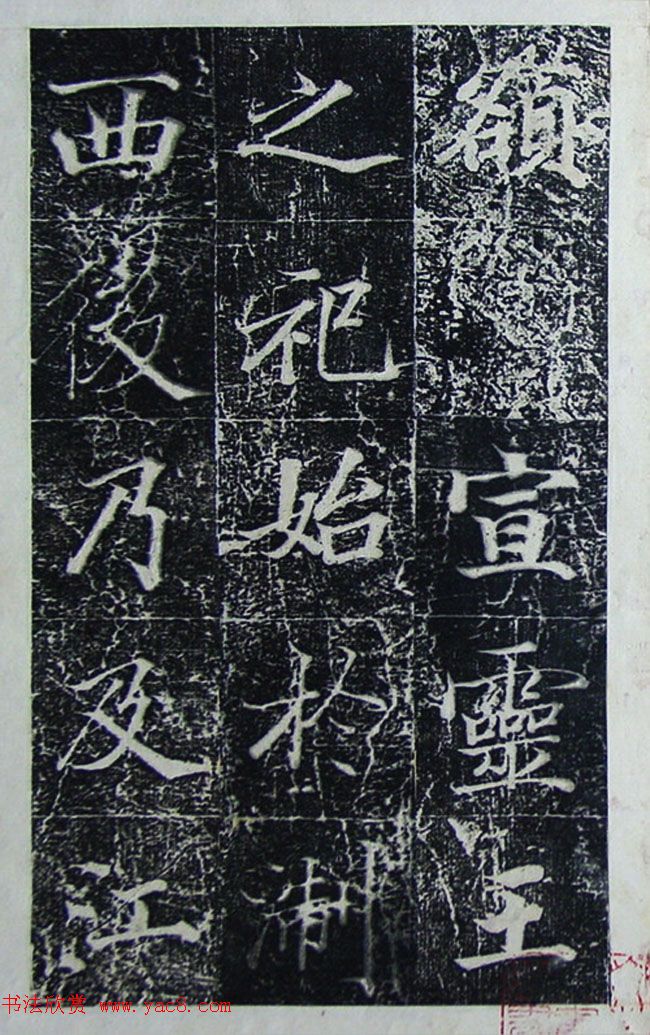 宣靈王
之祀始於淛
西後乃及江
书法欣赏 www.yac8.com